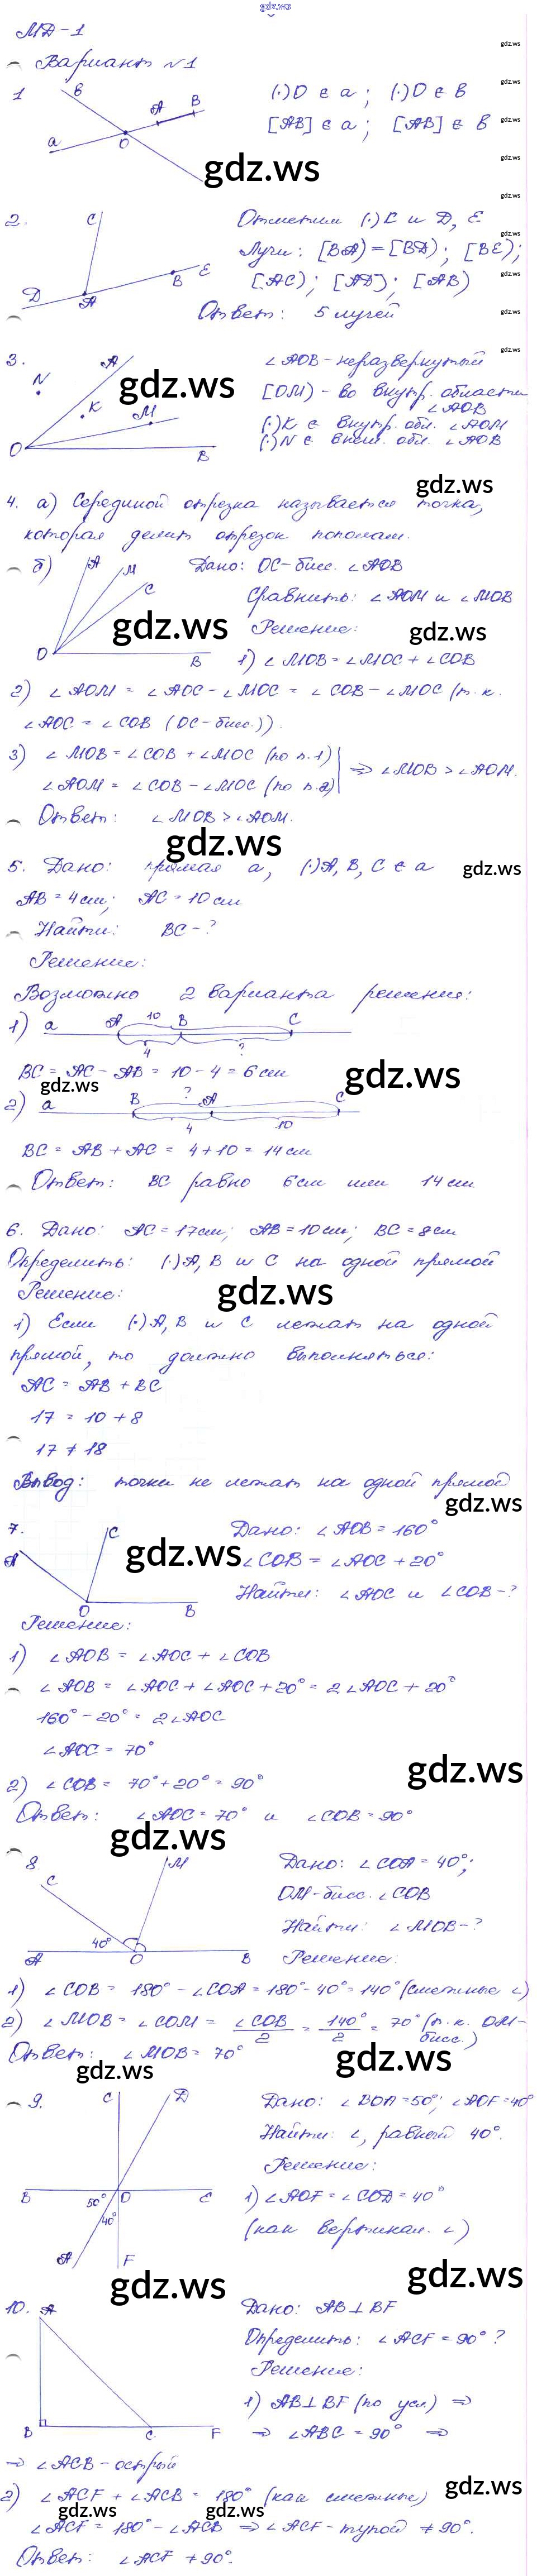 gdz.ws
МД-1
Вариант №1
1 в А В а О (·)D ∈ a; (·)D ∈ B
[AB] ∈ a; [AB] ∈ B
gdz.ws
2. C Отметим (·)C и D, E
Лучи: [BA) = [BD); [BE);
D A B E [AC); [AD); [AB)
Ответ: 5 лучей
3. A ∠AOB - неразвернутый
N K M [OM) - во внутр. области
∠AOB
(·)K ∈ внутр. обл. ∠AOM
O B (·)N ∈ внеш. обл. ∠AOB
gdz.ws
4. а) Серединой отрезка называется точка,
которая делит отрезок пополам.
б) A M C O B Дано: OC - бисс. ∠AOB
Сравнить: ∠AOM и ∠MOB
Решение:
1) ∠MOB = ∠MOC + ∠COB
2) ∠AOM = ∠AOC - ∠MOC = ∠COB - ∠MOC (т.к.
∠AOC = ∠COB (OC - бисс.)).
3) ∠MOB = ∠COB + ∠MOC (по п.1)
∠AOM = ∠COB - ∠MOC (по п.2) ⇒ ∠MOB > ∠AOM.
Ответ: ∠MOB > ∠AOM.
gdz.ws
5. Дано: прямая a, (·)A, B, C ∈ a
AB = 4 см; AC = 10 см
Найти: BC - ?
Решение:
Возможно 2 варианта решения:
1) a A 10 B C
4 ?
BC = AC - AB = 10 - 4 = 6 см
gdz.ws
2) a B ? A C
4 10
BC = AB + AC = 4 + 10 = 14 см
Ответ: BC равно 6 см или 14 см
6. Дано: AC = 17 см; AB = 10 см; BC = 8 см
Определить: (·)A, B и C на одной прямой
Решение:
1) Если (·)A, B и C лежат на одной
прямой, то должно выполняться:
AC = AB + BC
17 = 10 + 8
17 ≠ 18
Вывод: точки не лежат на одной прямой
gdz.ws
7. A C O B Дано: ∠AOB = 160°
∠COB = ∠AOC + 20°
Найти: ∠AOC и ∠COB - ?
Решение:
1) ∠AOB = ∠AOC + ∠COB
∠AOB = ∠AOC + ∠AOC + 20° = 2∠AOC + 20°
160° - 20° = 2∠AOC
∠AOC = 70°
2) ∠COB = 70° + 20° = 90°
Ответ: ∠AOC = 70° и ∠COB = 90°
gdz.ws
8. C M Дано: ∠COA = 40°;
OM - бисс. ∠COB
40° Найти: ∠MOB - ?
A O B Решение:
1) ∠COB = 180° - ∠COA = 180° - 40° = 140° (смежные ∠)
2) ∠MOB = ∠COM = ∠COB/2 = 140°/2 = 70° (т.к. OM - бисс.)
Ответ: ∠MOB = 70°
gdz.ws
9. C D Дано: ∠BOA = 50°; ∠AOF = 40°
Найти: ∠, равный 40°.
Решение:
B 50° O C 1) ∠AOF = ∠COD = 40°
40° (как вертикал. ∠)
A F
gdz.ws
10. A Дано: AB ⊥ BF
Определить: ∠ACF = 90° ?
Решение:
1) AB ⊥ BF (по усл.) ⇒
B C F ⇒ ∠ABC = 90° ⇒
⇒ ∠ACB - острый
2) ∠ACF + ∠ACB = 180° (как смежные)
∠ACF = 180° - ∠ACB ⇒ ∠ACF - тупой ≠ 90°.
Ответ: ∠ACF ≠ 90°.